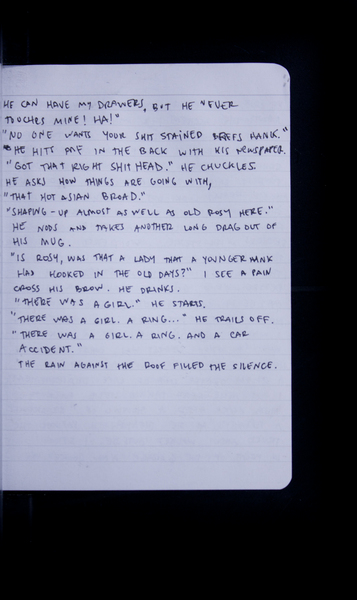 HE CAN HAVE MY DRAWERS, BUT HE NEVER
TOUCHES MINE! HA!"
"NO ONE WANTS YOUR SHIT STAINED BREFS HANK."
HE HITS ME IN THE BACK WITH HIS NEWSPAPER.
"GOT THAT RIGHT SHIT HEAD." HE CHUCKLES.
HE ASKS HOW THINGS ARE GOING WITH,
"THAT HOT ASIAN BROAD."
"SHAPING-UP ALMOST AS WELL AS OLD ROSY HERE."
HE NODS AND TAKES ANOTHER LONG DRAG OUT OF
HIS MUG.
"IS ROSY, WAS THAT A LADY THAT A YOUNGER HANK
HAD HOOKED IN THE OLD DAYS?" I SEE A PAIN
CROSS HIS BROW. HE DRINKS.
"THERE WAS A GIRL." HE STARTS.
"THERE WAS A GIRL. A RING..." HE TRAILS OFF.
"THERE WAS A GIRL. A RING. AND A CAR
ACCIDENT."
THE RAIN AGAINST THE ROOF FILLED THE SILENCE.